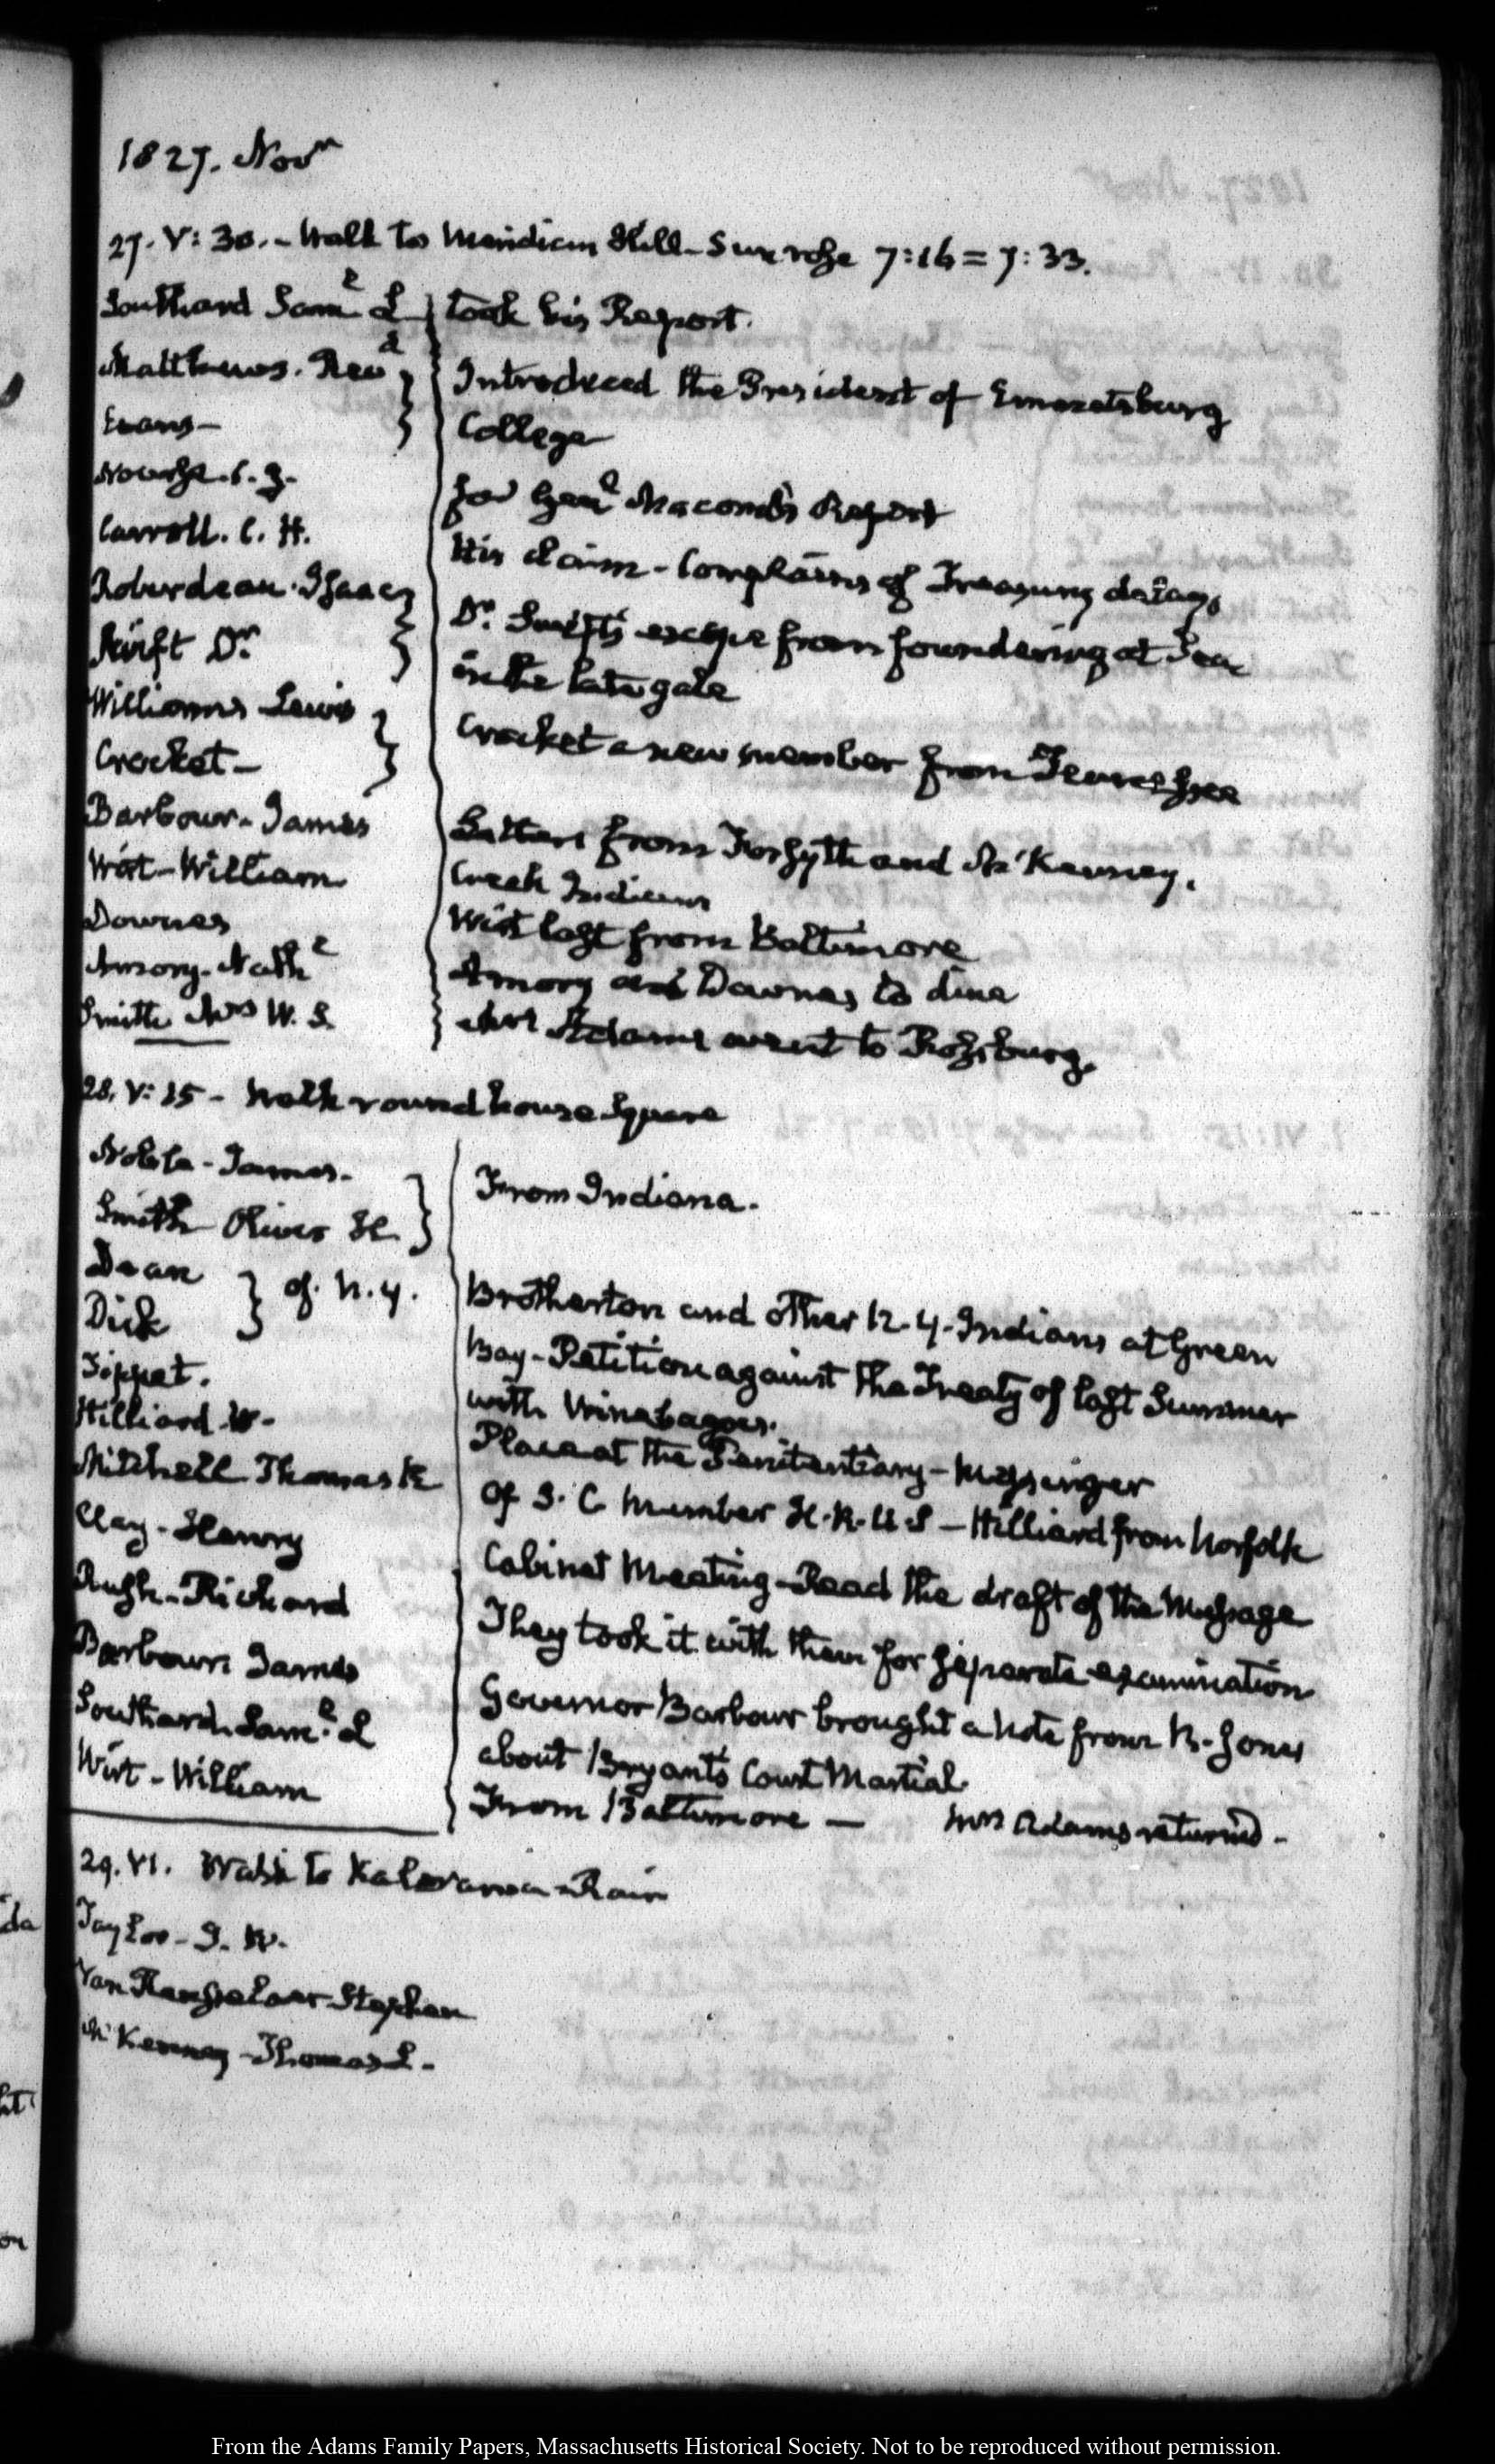 1827. Novr
27. V: 30. - Walk to Meridian Hill - Sun rose 7:16 = 7:33.
Southard Saml L
took his Report.
Matthews. Revd
Evans -
Introduced the President of Emmetsburg
College
Nourse. C. J.
for Genl Macomb's Report
Carroll. C. H.
His claim - Complains of Treasury delays
Roberdeau. Isaac
Swift Dr
Dr. Swift's escape from foundering at Sea
in the late gale
Williams Lewis
Crocket -
Crocket a new member from Tennessee
Barbour - James
Letters from Forsyth and McKenney.
Creek Indians
Wirt - William
Wirt last from Baltimore
Downes
Amory - Nathl
Amory and Downes to dine
Smith Mrs W. S.
Mrs Adams went to Rossburg.
28. V: 15 - Walk round house Square
Noble - James.
Smith Oliver H.
From Indiana.
Dean
Dick
of N. Y.
Brotherton and other N. Y. Indians at Green
Bay - Petition against the Treaty of last Summer
with Winabagoes.
Tippet.
Place at the Penitentiary - Messenger
Hilliard W -
Mitchell Thomas R
of S. C Member H. R. U. S - Hilliard from Norfolk
Clay - Henry
Rush - Richard
Barbour James
Southard. Saml. L
Wirt - William
Cabinet Meeting - Read the draft of the Message
They took it with them for separate examination
Governor Barbour brought a Note from R. Jones
about Bryant's Court Martial
From Baltimore — Mrs Adams returned -
29. VI. Walk to Kalorama - Rain
Taylor - J. W.
Van Rensselaer Stephen
McKenney - Thomas L -
From the Adams Family Papers, Massachusetts Historical Society. Not to be reproduced without permission.